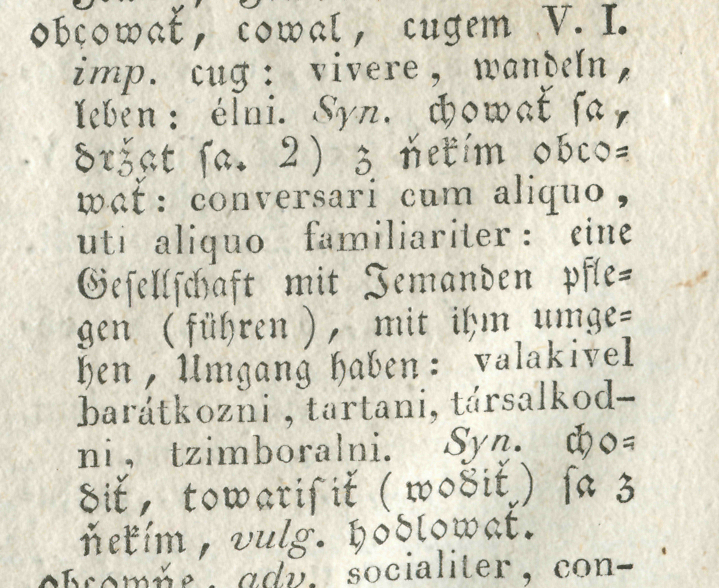 obcowať, cowal, cugem V. I.
imp. cug: vivere, wandeln,
leben: élni. Syn. chowať sa,
držat sa. 2) z ňekím obco=
wať: conversari cum aliquo,
uti aliquo familiariter: eine
Gesellschaft mit Jemanden pfle=
gen (führen), mit ihm umge=
hen, Umgang haben: valakivel
barátkozni, tartani, társalkod-
ni, tzimboralni. Syn. cho=
diť, towarisiť (wodiť) sa z
ňekím, vulg. hodlowať.
obcomňe, adv. socialiter, con-